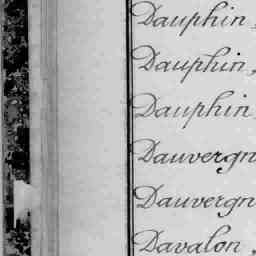 Dauphin,
Dauphin,
Dauphin,
Dauvergn
Dauvergn
Davalon,